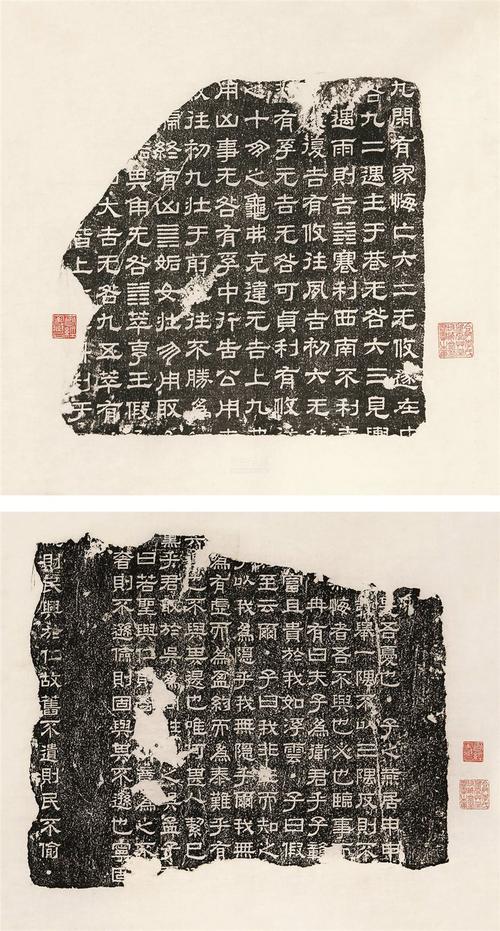 閑有家悔亡六二无攸遂在中
咎九二遇主于巷无咎六三見輿
遇雨則吉䷦蹇利西南不利東
復吉有攸往夙吉初六无咎
有孚元吉无咎可貞利有攸
十朋之龜弗克違元吉上九弗
用凶事无咎有孚中行告公用圭
攸往初九壯于前往不勝為
終有凶䷫姤女壯勿用取
其角无咎䷬萃亨王假
大吉无咎九五萃有
上利于
吾憂也·子之燕居申申
舉一隅不以三隅反則不
悔者吾不與也必也臨事
冉有曰夫子為衛君乎子
富且貴於我如浮雲·子曰假
至云爾·子曰我非生而知之
以我為隱乎我無隱乎爾我無
為有虛而為盈約而為泰難乎有
也不與其退也唯何甚人絜己
黨乎君取於吳為姓之吳孟子
曰若聖與仁則為之不
奢則不遜儉則固與其不遜也寧固
則民興於仁故舊不遺則民不偷·